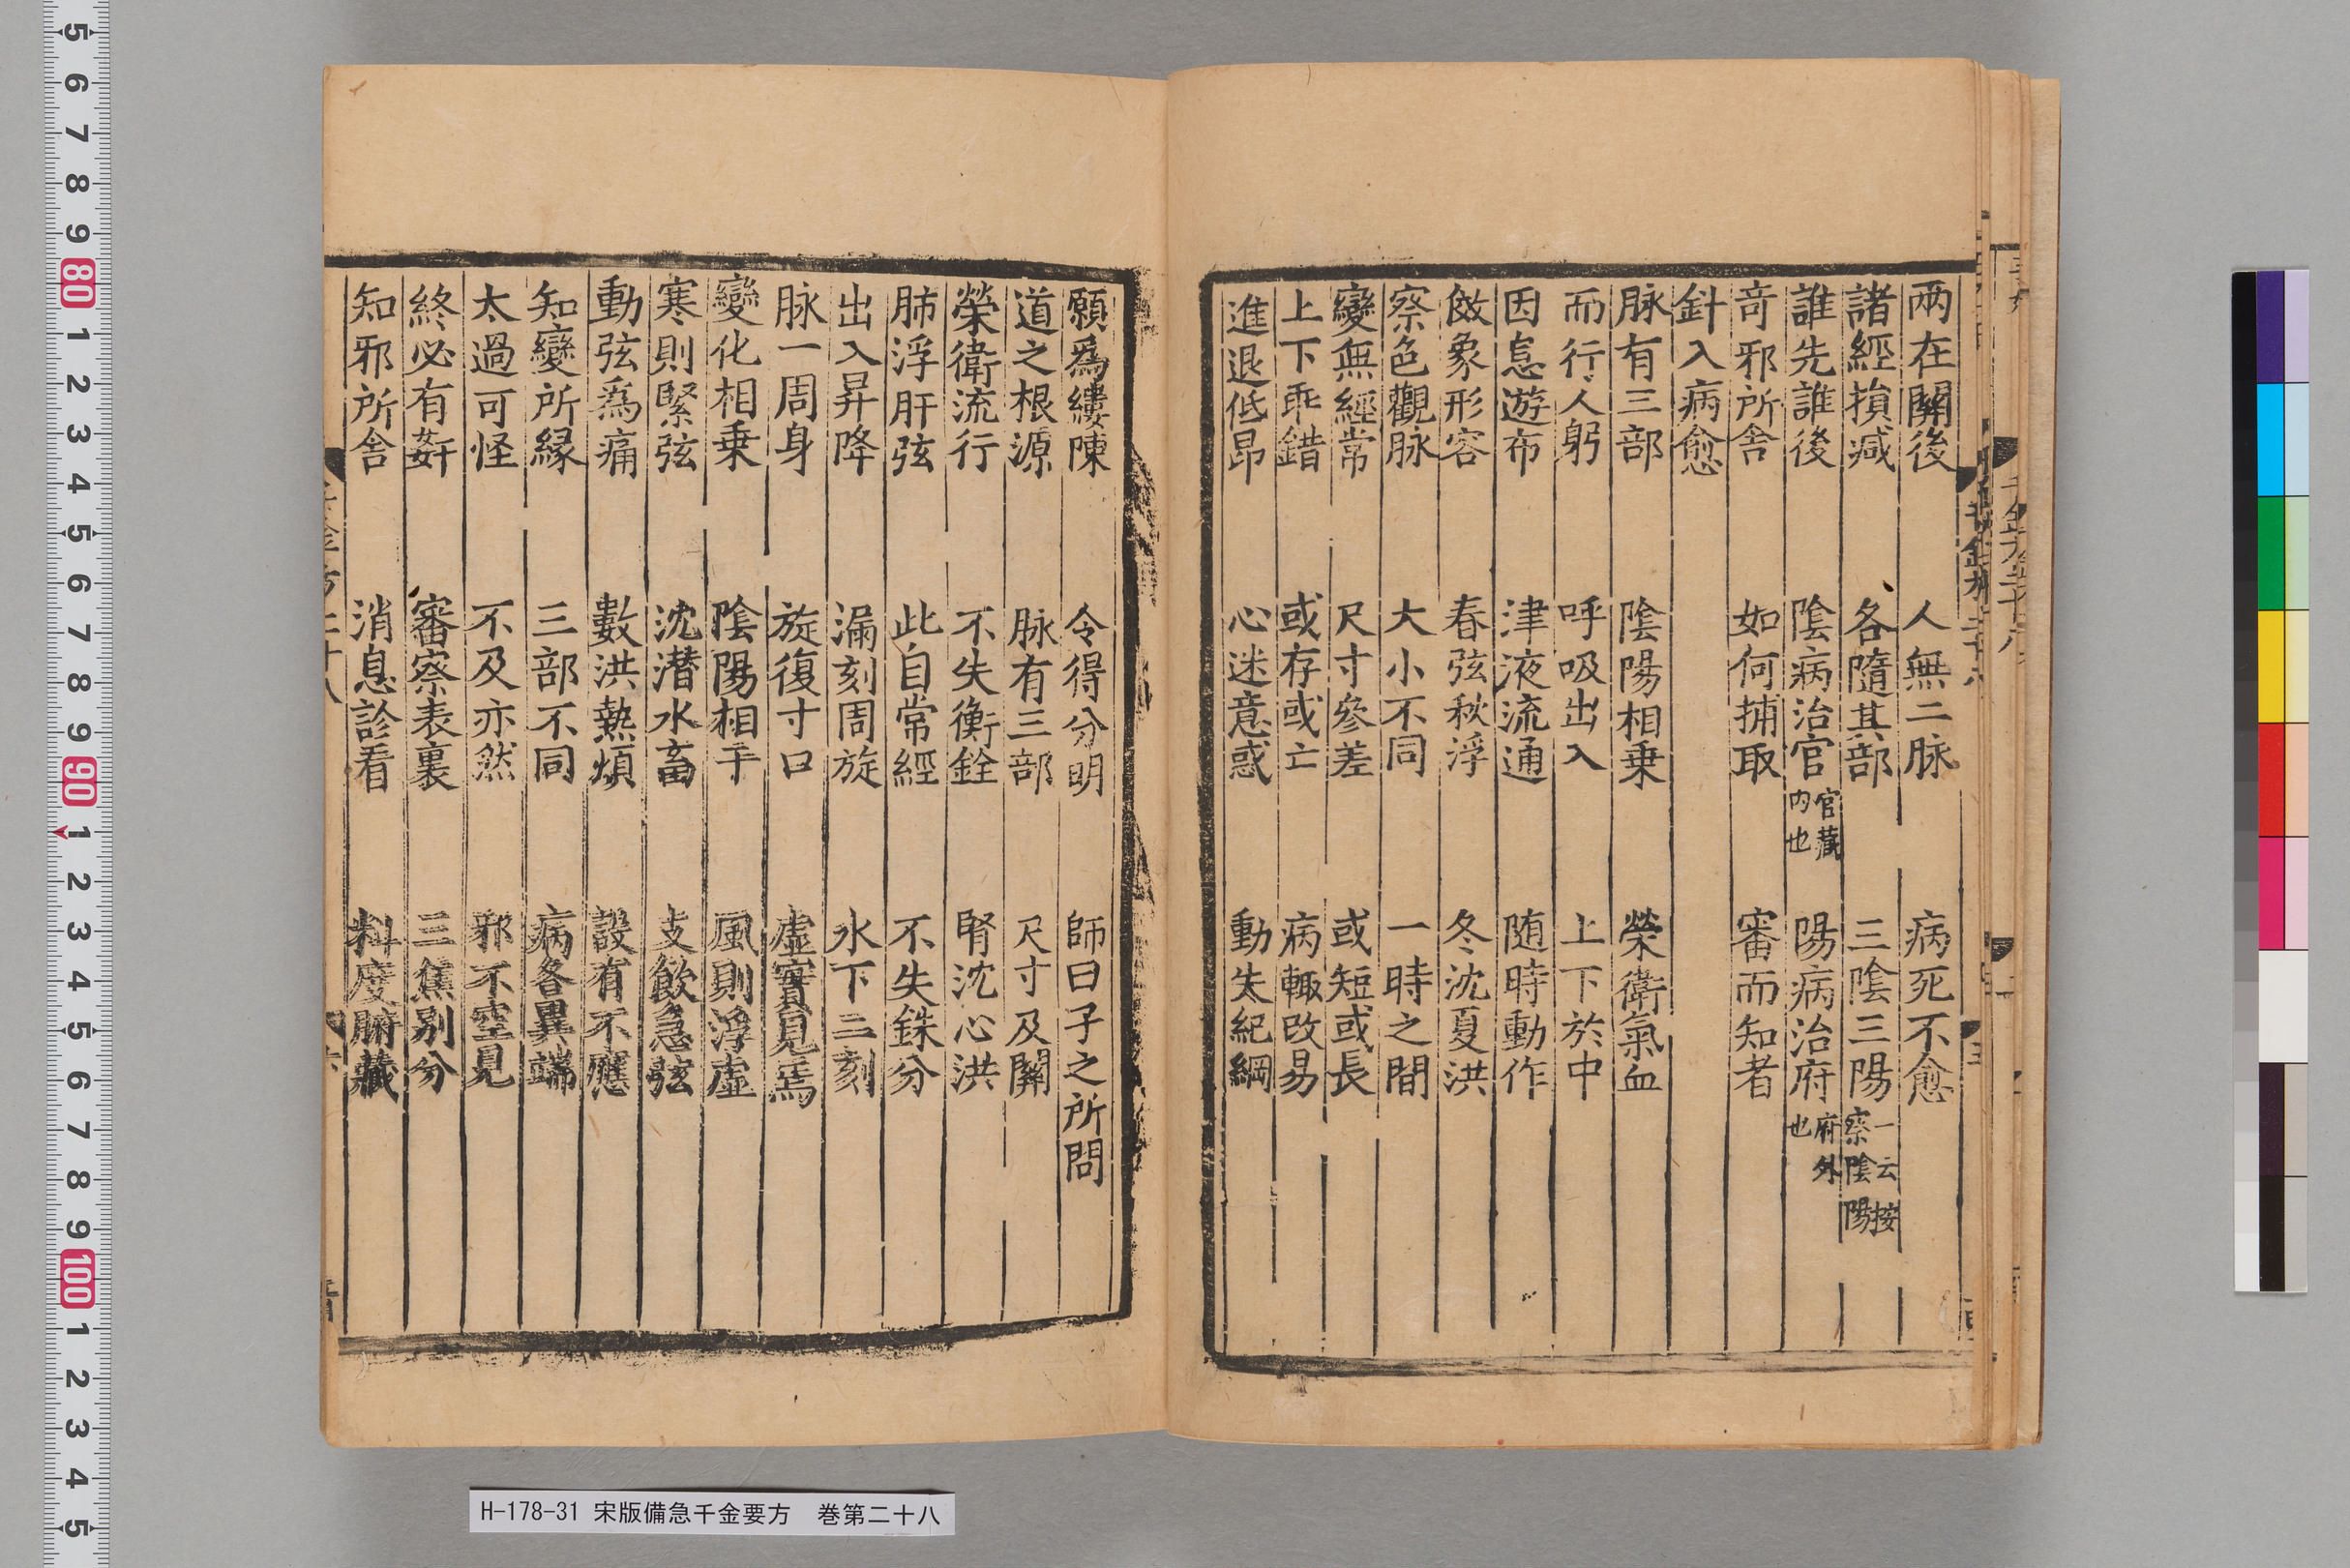 兩在關後　人無二脉　病死不愈
諸經損减　各隨其部　三陰三陽一云按察陰陽
誰先誰後　陰病治官官藏内也　陽病治府府外也
竒邪所舍　如何捕取　審而知者
針入病愈
脉有三部　陰陽相乗　榮衛氣血
而行人躬　呼吸出入　上下於中
因息遊布　津液流通　随時動作
斆象形容　春弦秋浮　冬沈夏洪
察色觀脉　大小不同　一時之間
變無經常　尺寸參差　或短或長
上下乖錯　或存或亡　病輙改易
進退低昂　心迷意惑　動失紀綱
願爲縷陳　令得分明　師曰子之所問
道之根源　脉有三部　尺寸及關
榮衛流行　不失衡銓　腎沈心洪
肺浮肝弦　此自常經　不失銖分
出入昇降　漏刻周旋　水下二刻
脉一周身　旋復寸口　虚實見焉
變化相乗　陰陽相干　風則浮虚
寒則緊弦　沈潜水畜　支飲急弦
動弦爲痛　數洪熱煩　設有不應
知變所縁　三部不同　病各異端
太過可怪　不及亦然　邪不空見
終必有姧　審察表裏　三焦别分
知邪所舍　消息診看　料度腑藏
H-178-31 宋版備急千金要方　巻第二十八